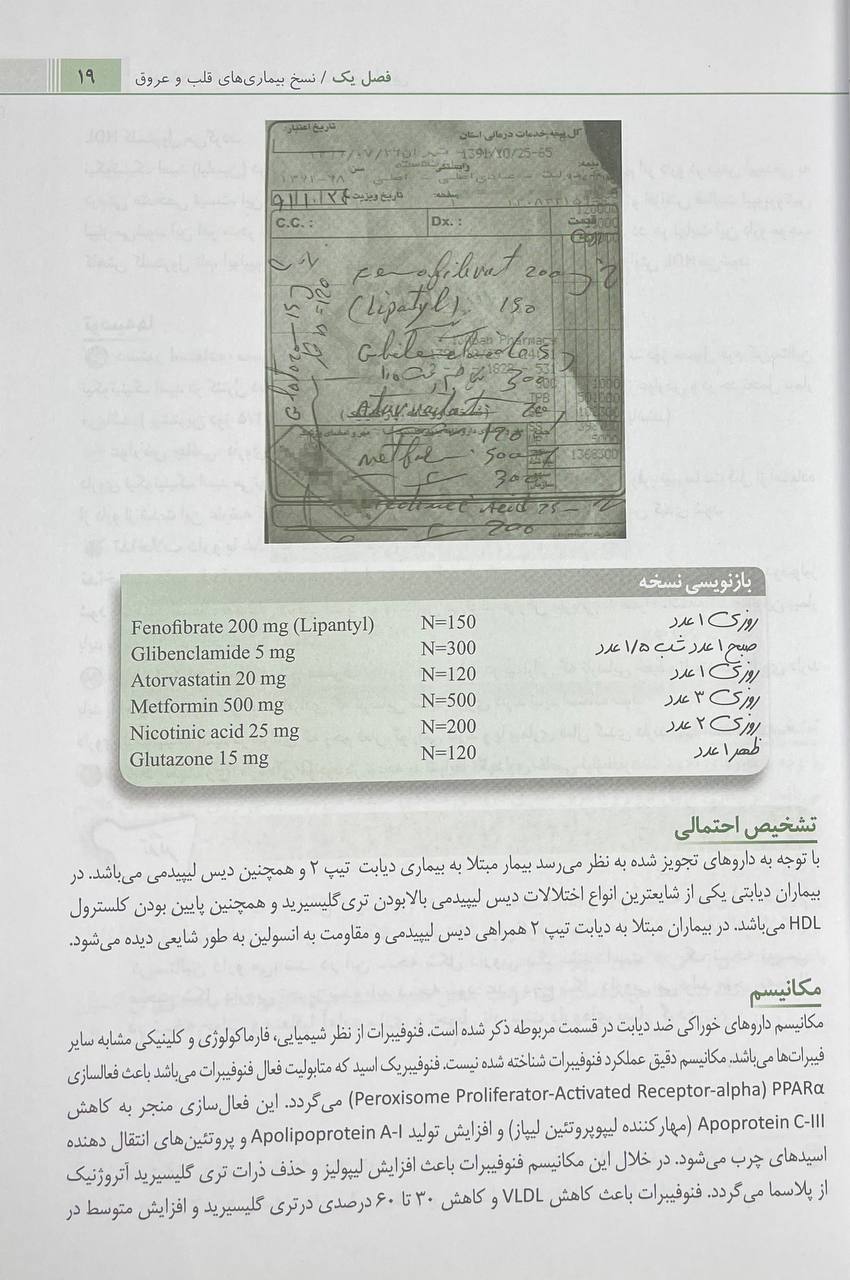 فصل یک / نسخ بیماری‌های قلب و عروق ۱۹
تاریخ اعتبار:
کل بیمه خدمات درمانی استان
1391/10/25-65
تاریخ ویزیت
C.C. : Dx. :
قیمت
200
(Lipatyl) 150
Pharmacy
300
500
1368300
300
Acid 25
200
بازنویسی نسخه
Fenofibrate 200 mg (Lipantyl) N=150 روزی ۱ عدد
Glibenclamide 5 mg N=300 صبح ۱ عدد شب ۱/۵ عدد
Atorvastatin 20 mg N=120 روزی ۱ عدد
Metformin 500 mg N=500 روزی ۳ عدد
Nicotinic acid 25 mg N=200 روزی ۲ عدد
Glutazone 15 mg N=120 ظهر ۱ عدد
تشخیص احتمالی
با توجه به داروهای تجویز شده به نظر می‌رسد بیمار مبتلا به بیماری دیابت تیپ ۲ و همچنین دیس لیپیدمی می‌باشد. در
بیماران دیابتی یکی از شایعترین انواع اختلالات دیس لیپیدمی بالابودن تری‌گلیسیرید و همچنین پایین بودن کلسترول
HDL می‌باشد. در بیماران مبتلا به دیابت تیپ ۲ همراهی دیس لیپیدمی و مقاومت به انسولین به طور شایعی دیده می‌شود.
مکانیسم
مکانیسم داروهای خوراکی ضد دیابت در قسمت مربوطه ذکر شده است. فنوفیبرات از نظر شیمیایی، فارماکولوژی و کلینیکی مشابه سایر
فیبرات‌ها می‌باشد. مکانیسم دقیق عملکرد فنوفیبرات شناخته شده نیست. فنوفیبریک اسید که متابولیت فعال فنوفیبرات می‌باشد باعث فعالسازی
PPARα (Peroxisome Proliferator-Activated Receptor-alpha) می‌گردد. این فعال‌سازی منجر به کاهش
Apoprotein C-III (مهارکننده لیپوپروتئین لیپاز) و افزایش تولید Apolipoprotein A-I و پروتئین‌های انتقال دهنده
اسیدهای چرب می‌شود. در خلال این مکانیسم فنوفیبرات باعث افزایش لیپولیز و حذف ذرات تری گلیسیرید آتروژنیک
از پلاسما می‌گردد. فنوفیبرات باعث کاهش VLDL و کاهش ۳۰ تا ۶۰ درصدی درتری گلیسیرید و افزایش متوسط در